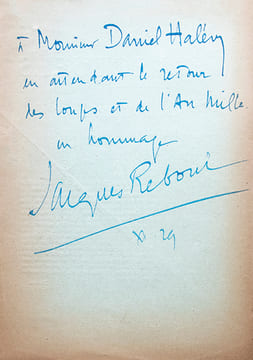 à Monsieur Daniel Halévy
en attendant le retour
des loups et de l'An Mille.
en hommage
Jacques Reboul
XI 29